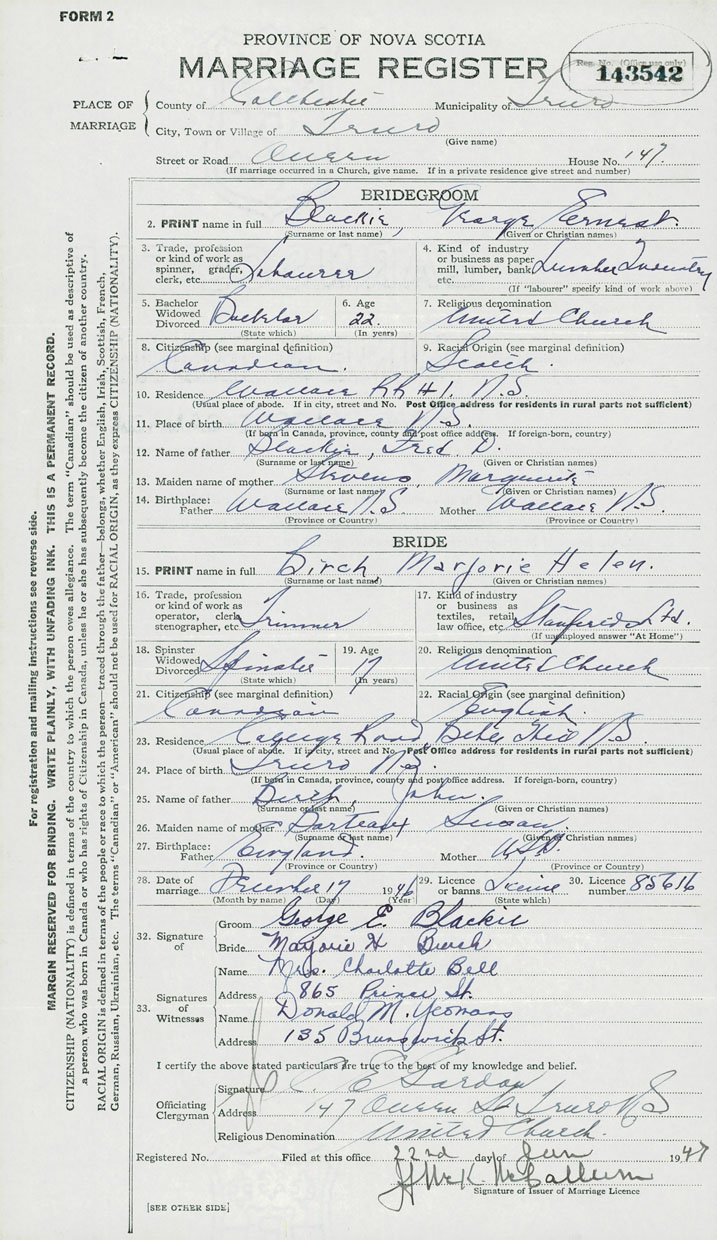 FORM 2
PROVINCE OF NOVA SCOTIA
MARRIAGE REGISTER
Reg. No. (Office use only)
143542
PLACE OF MARRIAGE
County of Colchester Municipality of Truro
City, Town or Village of Truro
(Give name)
Street or Road Queen House No. 147.
(If marriage occurred in a Church, give name. If in a private residence give street and number)
BRIDEGROOM
2. PRINT name in full Blackie, George Ernest.
(Surname or last name) (Given or Christian names)
3. Trade, profession or kind of work as spinner, grader, clerk, etc.
4. Kind of industry or business as paper mill, lumber, bank Lumber Industry
(If "labourer" specify kind of work above)
5. Bachelor Widowed Divorced Bachelor
(State which)
6. Age 22.
(In years)
7. Religious denomination United Church
8. Citizenship (see marginal definition) Canadian.
9. Racial Origin (see marginal definition) Scotch.
10. Residence Wallace RR #1. N.S.
(Usual place of abode. If in city, street and No. Post Office address for residents in rural parts not sufficient)
11. Place of birth Wallace N.S.
(If born in Canada, province, county and post office address. If foreign-born, country)
12. Name of father Blackie, Fred D.
(Surname or last name) (Given or Christian names)
13. Maiden name of mother Stevens, Marguerite
(Surname or last name) (Given or Christian names)
14. Birthplace: Father Wallace N.S Mother Wallace N.S.
(Province or Country) (Province or Country)
BRIDE
15. PRINT name in full Birch Marjorie Helen.
(Surname or last name) (Given or Christian names)
16. Trade, profession or kind of work as operator, clerk, stenographer, etc. Trimmer
17. Kind of industry or business as textiles, retail, law office, etc. Stanfield's Ltd.
(If unemployed answer "At Home")
18. Spinster Widowed Divorced Spinster
(State which)
19. Age 17
(In years)
20. Religious denomination United Church
21. Citizenship (see marginal definition) Canadian
22. Racial Origin (see marginal definition) English.
23. Residence Road, Bible Hill N.S.
(Usual place of abode. If in city, street and No. Post Office address for residents in rural parts not sufficient)
24. Place of birth Truro N.S.
(If born in Canada, province, county and postoffice address. If foreign-born, country)
25. Name of father Birch, John.
(Surname or last name) (Given or Christian names)
26. Maiden name of mother Barteaux Susan,
(Surname or last name) (Given or Christian names)
27. Birthplace: Father England. Mother USA.
(Province or Country) (Province or Country)
28. Date of marriage 17 1946
(Month by name) (Day) (Year)
29. Licence or banns License
(State which)
30. Licence number 85616
32. Signature of
Groom George E. Blackie
Bride Marjorie H Birch
33. Signatures of Witnesses
Name Mrs. Charlotte Bell
Address 865 Prince St.
Name Donald M. Yeomans
Address 135 Brunswick St.
I certify the above stated particulars are true to the best of my knowledge and belief.
Officiating Clergyman
Signature C E Gordon
Address 147 Queen St Truro N S
Religious Denomination United Church.
Registered No. Filed at this office 22nd day of Jan 1947
J McK McCallum
Signature of Issuer of Marriage Licence
[SEE OTHER SIDE]
For registration and mailing instructions see reverse side.
MARGIN RESERVED FOR BINDING. WRITE PLAINLY, WITH UNFADING INK. THIS IS A PERMANENT RECORD.
CITIZENSHIP (NATIONALITY) is defined in terms of the country to which the person owes allegiance. The term "Canadian" should be used as descriptive of
a person who was born in Canada or who has rights of Citizenship in Canada, unless he or she has subsequently become the citizen of another country.
RACIAL ORIGIN is defined in terms of the people or race to which the person—traced through the father—belongs, whether English, Irish, Scottish, French,
German, Russian, Ukrainian, etc. The terms "Canadian" or "American" should not be used for RACIAL ORIGIN, as they express CITIZENSHIP (NATIONALITY).